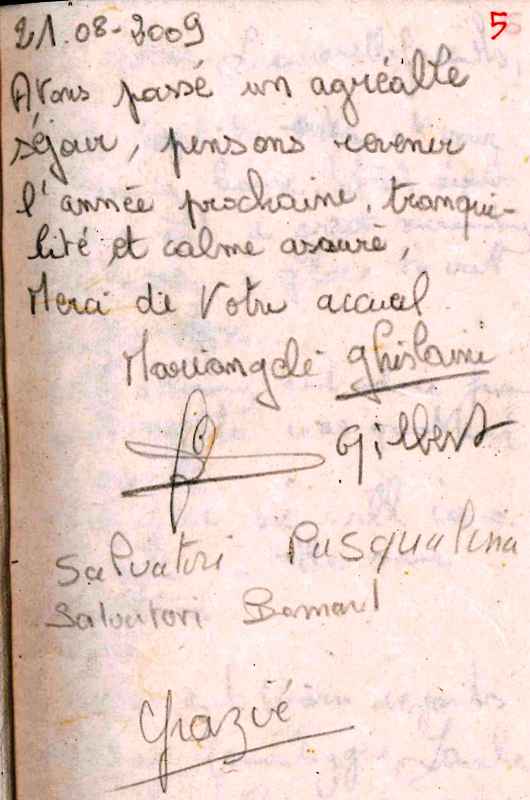 21.08-2009
5
Avons passé un agréable
séjour, pensons revenir
l'année prochaine, tranqui-
lité et calme assuré,
Merci de Votre accueil
Mariangelé Ghislaine
Gilbert
Salvatori Pasqualina
Salvatori Bernard
Grazié